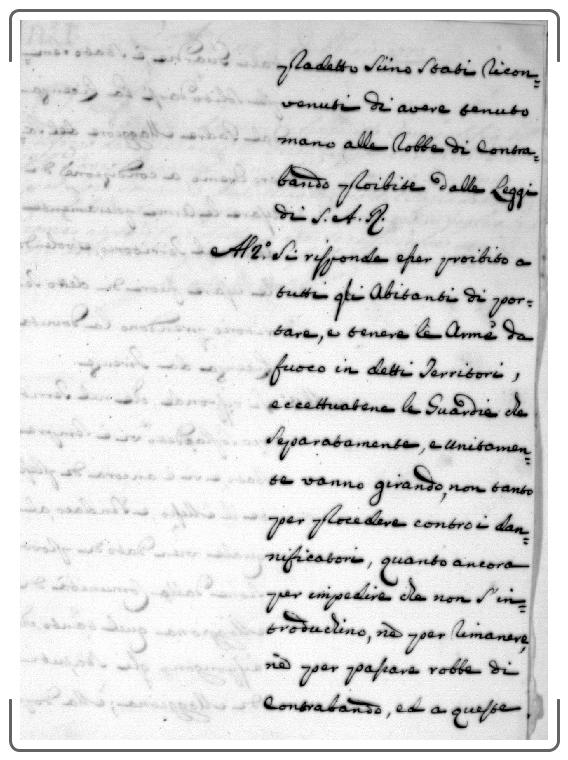 pradetto siino stati ricon=
venuti di avere tenuto
mano alle robbe di Contra=
bando proibite dalle Leggi
di S. A. R.
Al 2.° Si risponde esser proibito a
tutti gli Abitanti di por=
tare, e tenere le Arme da
fuoco in detti Territori,
eccettuatene le Guardie che
separatamente, e unitamen=
te vanno girando, non tanto
per procedere contro i dan=
nificatori, quanto ancora
per impedire che non s'in=
troduchino, nè per rimanere,
nè per passare robbe di
Contrabando, ed a queste